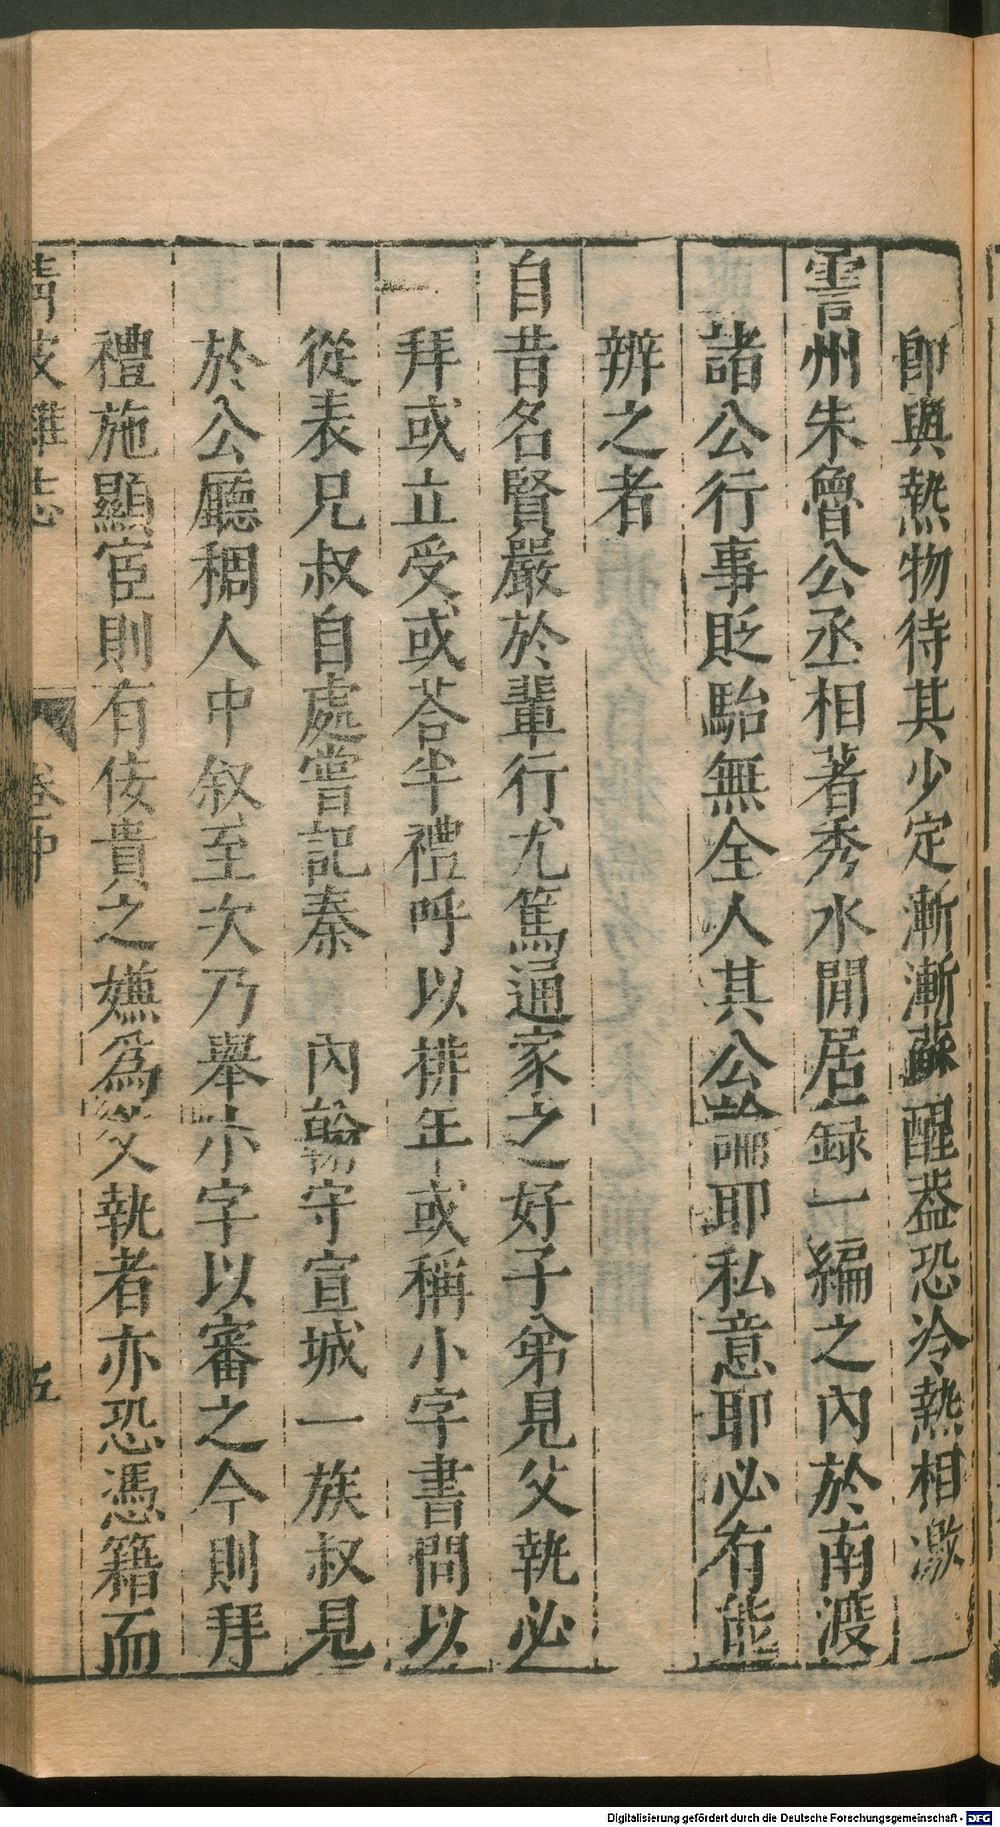 即與熱物待其少定漸漸蘇醒葢恐冷熱相激
霅州朱魯公丞相著秀水閒居録一編之內於南渡
諸公行事貶駘無全人其公論耶私意耶必有能
辨之者
自昔名賢嚴於輩行尤篤通家之好子弟見父執必
拜或立受或荅半禮呼以排年或稱小字書問以
從表兄叔自處嘗記秦 內翰守宣城一族叔見
於公廳稠人中叙至次乃舉小字以審之今則拜
禮施顯宦則有佞貴之嫌爲父執者亦恐憑籍而
清波雜志 卷中 五
Digitalisierung gefördert durch die Deutsche Forschungsgemeinschaft - DFG